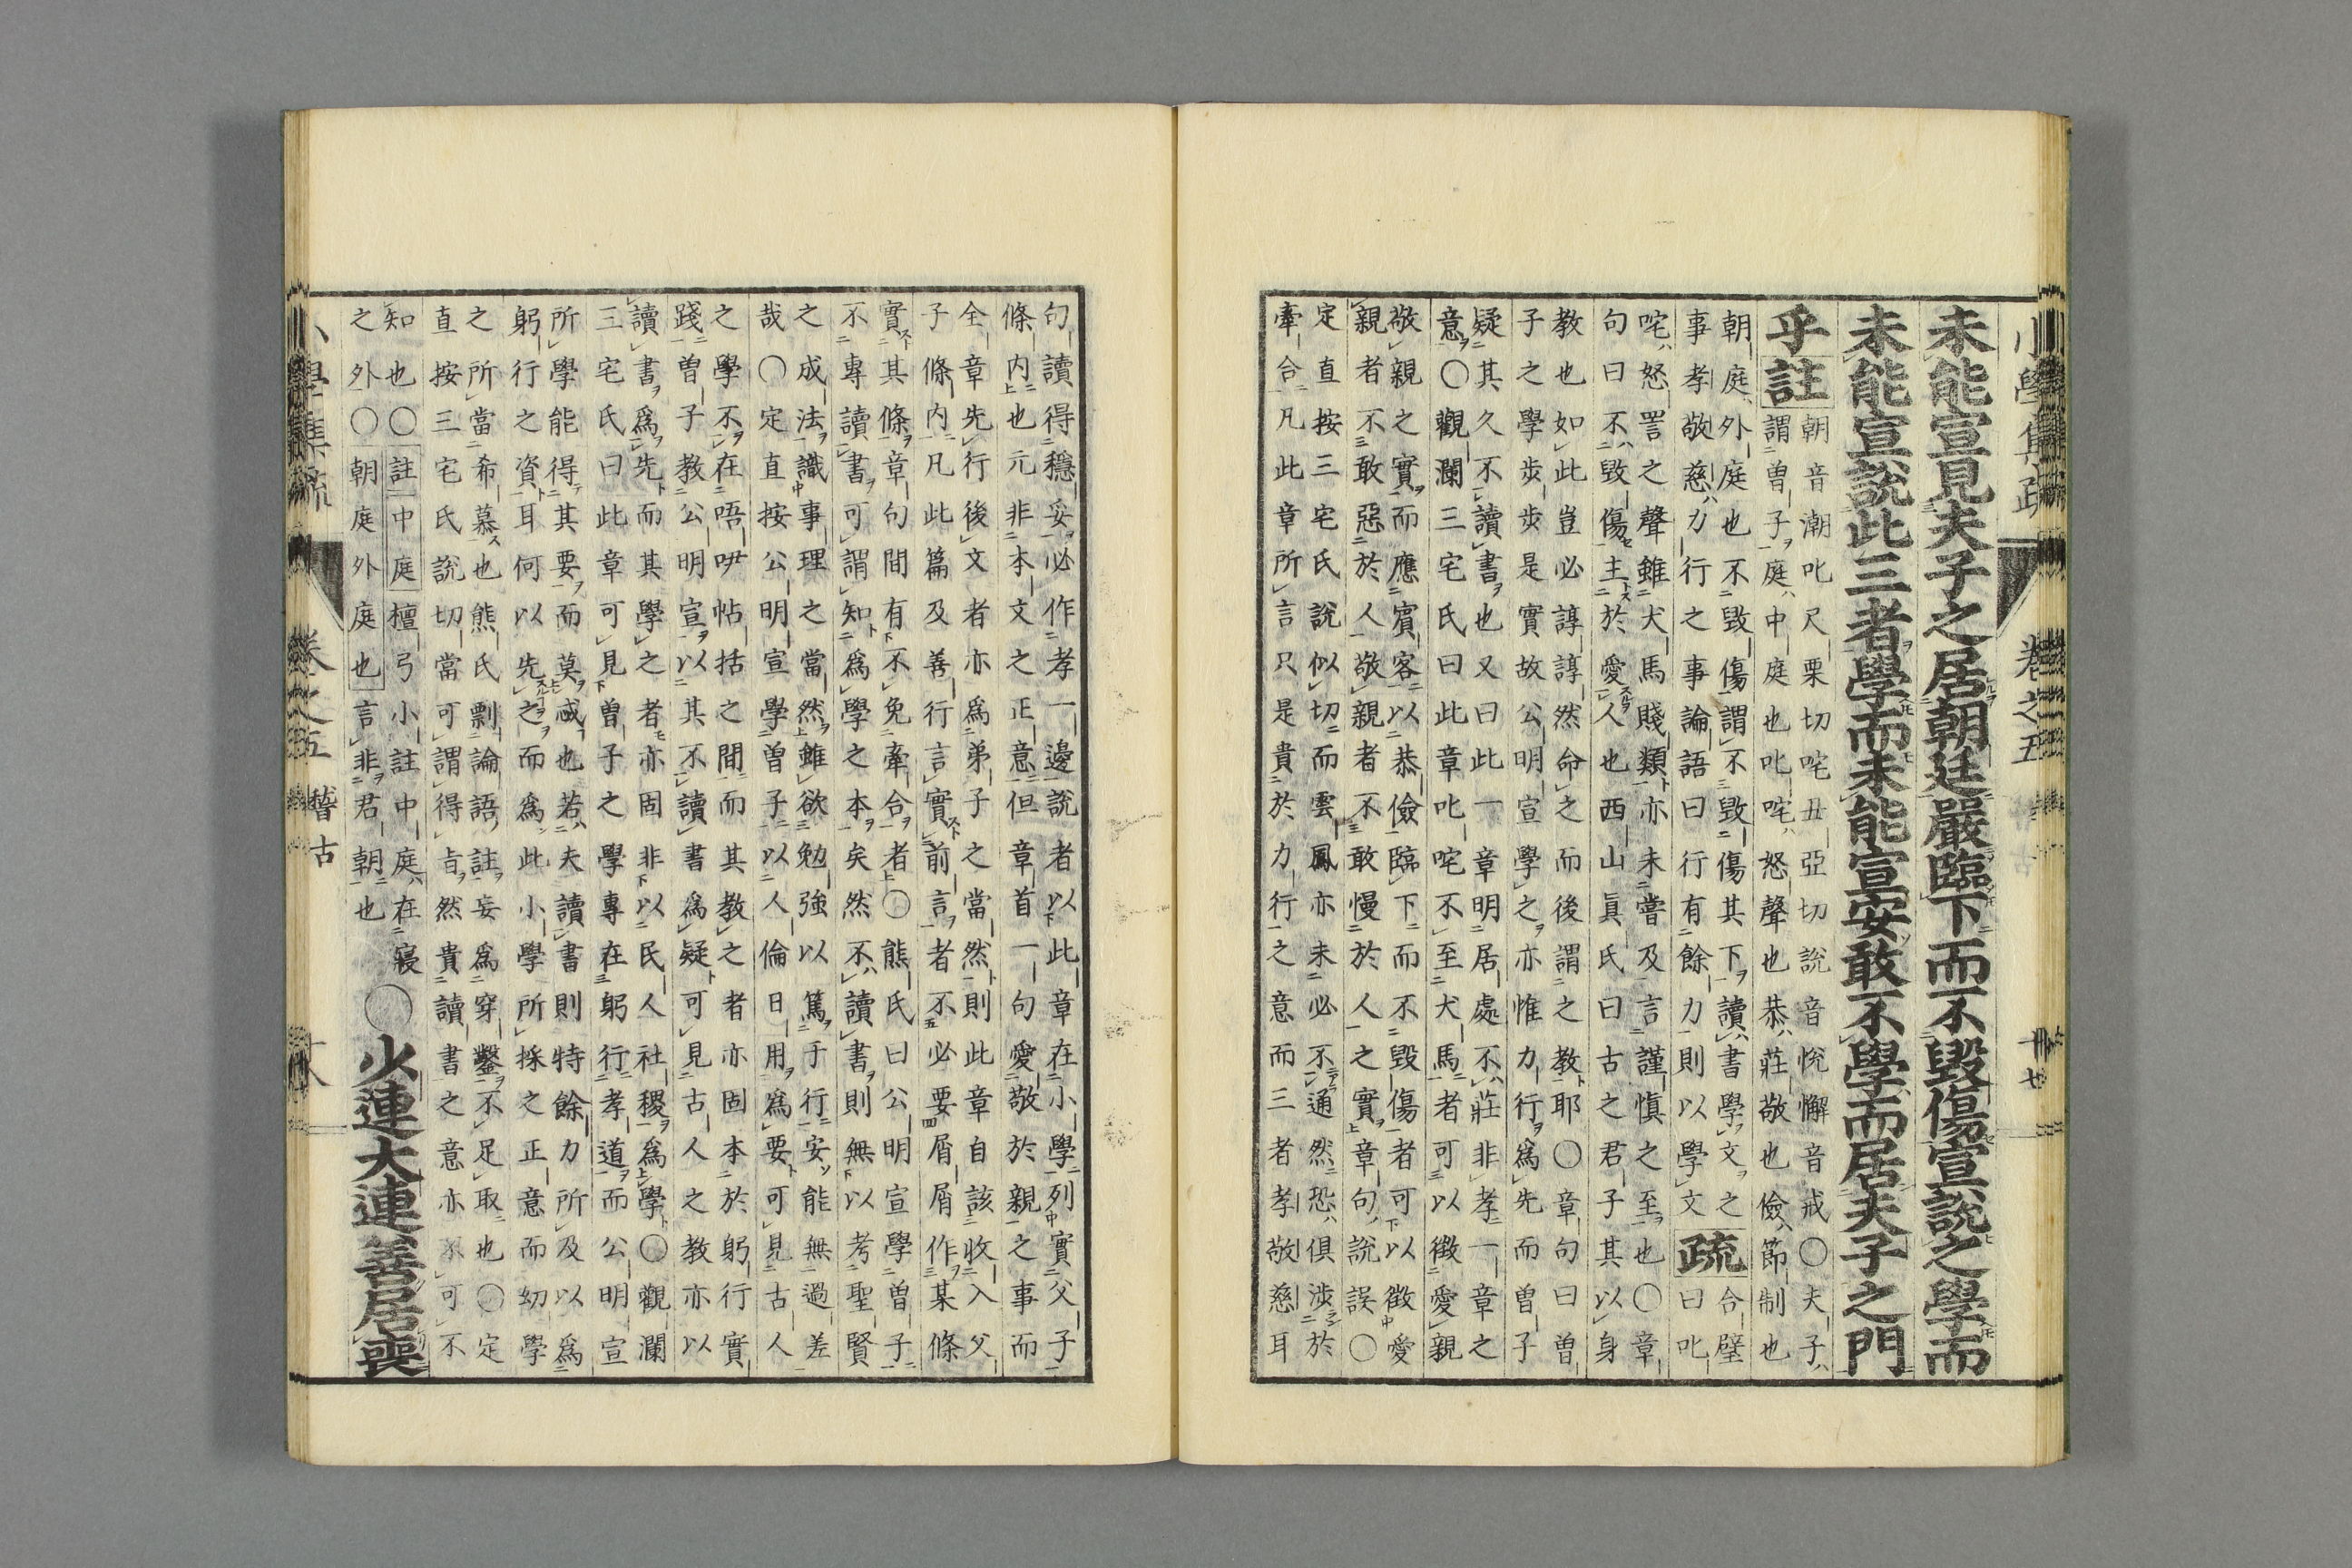 未能宣見夫子之居朝廷嚴臨下而不毀傷宣說之學而
未能宣說此三者學而未能宣安敢不學而居夫子之門
乎註
朝音潮叱尺栗切咤丑亞切說音悅懈音戒〇夫子
謂曾子庭中庭也叱咤怒聲也恭莊敬也儉節制也
朝庭外庭也不毀傷謂不毀傷其下讀書學文之
事孝敬慈力行之事論語曰行有餘力則以學文
疏
合璧
曰叱
咤怒詈之聲雖犬馬賤類亦未嘗及言謹愼之至也〇章
句曰不毀傷主於愛人也西山眞氏曰古之君子其以身
教也如此豈必諄諄然命之而後謂之教耶〇章句曰曾
子之學步步是實故公明宣學之亦惟力行爲先而曾子
疑其久不讀書也又曰此一章明居處不莊非孝一章之
意〇觀瀾三宅氏曰此章叱咤不至犬馬者可以徵愛親
敬親之實而應賓客以恭儉臨下而不毀傷者可以徵愛
親者不敢惡於人敬親者不敢慢於人之實章句說誤〇
定直按三宅氏說似切而雲鳳亦未必不通然恐俱涉於
牽合凡此章所言只是貴於力行之意而三者孝敬慈耳
小學集疏
卷之五
廿七
句讀得穩妥必作孝一邊說者以此章在小學列實父子
條内也元非本文之正意但章首一句愛敬於親之事而
全章先行後文者亦爲弟子之當然則此章自該收入父
子條内凡此篇及善行言實前言者不必要屑屑作某條
實其條章句間有不免牽合者〇熊氏曰公明宣學曾子
不專讀書可謂知爲學之本矣然不讀書則無以考聖賢
之成法識事理之當然雖欲勉強以篤于行安能無過差
哉〇定直按公明宣學曾子以人倫日用爲要可見古人
之學不在唔咿帖括之間而其教之者亦固本於躬行實
踐曾子教公明宣以其不讀書爲疑可見古人之教亦以
讀書爲先而其學之者亦固非以民人社稷爲學〇觀瀾
三宅氏曰此章可見曾子之學專在躬行孝道而公明宣
所學能得其要而莫惑也若夫讀書則特餘力所及以爲
躬行之資耳何以先之而爲此小學所採文正意而幼學
之所當希慕也熊氏剽論語註妄爲穿鑿不足取也〇定
直按三宅氏說切當可謂得旨然貴讀書之意亦不可不
知也〇註中庭檀弓小註中庭在寢
之外〇朝庭外庭也言非君朝也
〇少連大連善居喪
卷之五
稽古